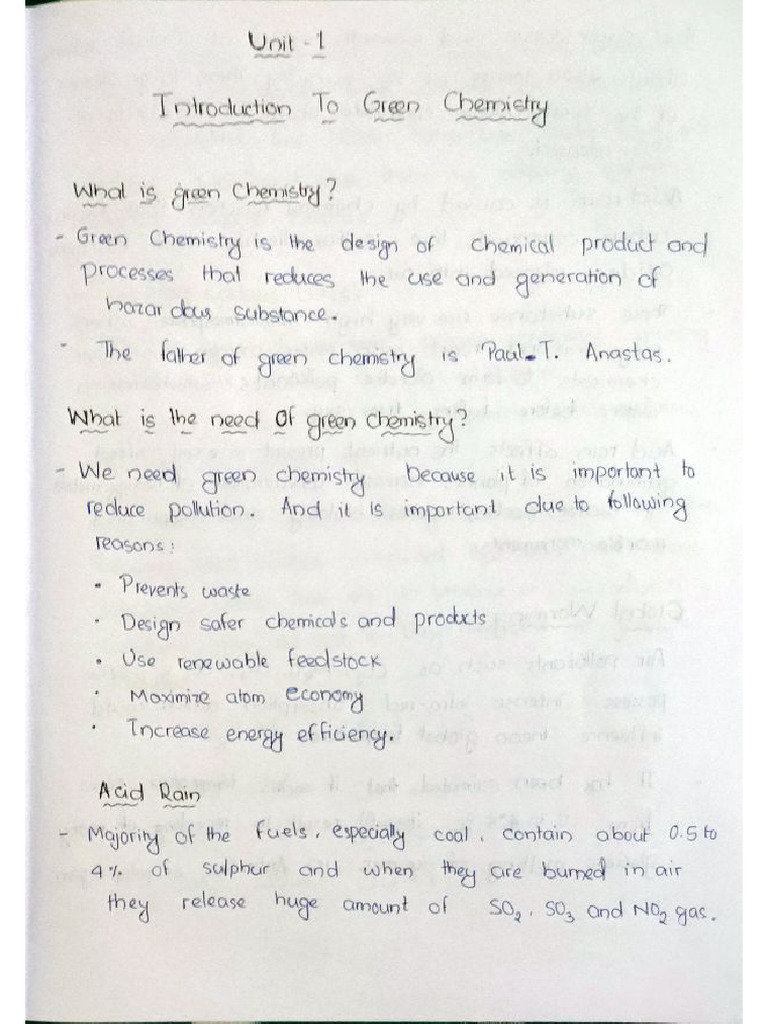 Unit - 1
Introduction To Green Chemistry
What is green Chemistry?
- Green Chemistry is the design of chemical product and
processes that reduces the use and generation of
hazardous substance.
- The father of green chemistry is Paul. T. Anastas.
What is the need Of green chemistry?
- We need green chemistry because it is important to
reduce pollution. And it is important due to following
reasons:
• Prevents waste
• Design safer chemicals and products
• Use renewable feedstock
• Maximize atom economy
• Increase energy efficiency.
Acid Rain
- Majority of the fuels, especially coal, contain about 0.5 to
4% of sulphur and when they are burned in air
they release huge amount of SO₂, SO₃ and NO₂ gas.